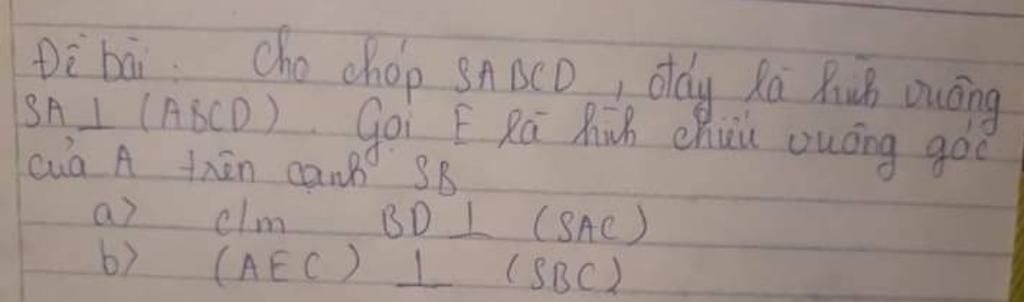 Đề bài: Cho chóp SABCD, đáy là hình vuông
SA ⊥ (ABCD). Gọi E là hình chiếu vuông góc
của A trên cạnh SB
a> c/m BD ⊥ (SAC)
b> (AEC) ⊥ (SBC)